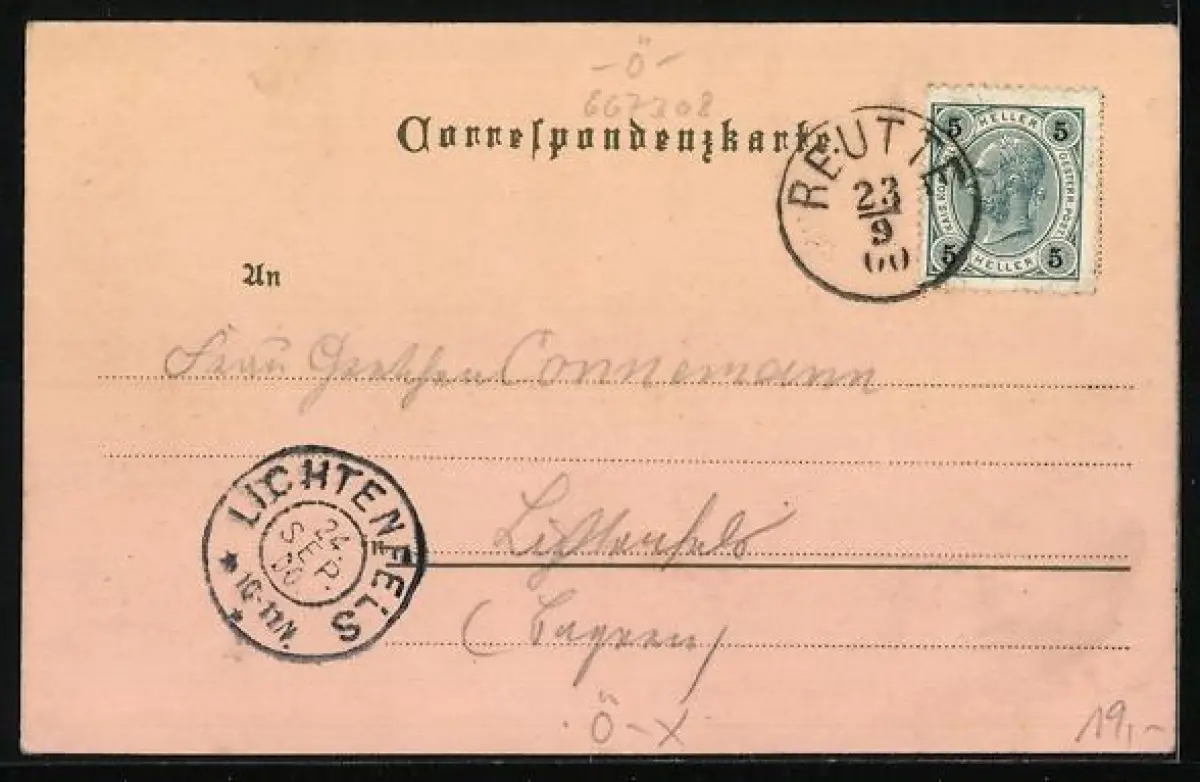 - Ö -
667308
Correspondenzkarte.
REUTTE
23
9
00
5 HELLER 5
KAIS. KÖN. OESTERR. POST
5 HELLER 5
An
Frau Gretchen Connemann
LICHTENFELS
24.
SEP.
00.
10-11V.
Lichtenfels
(Bayern)
Ö-X
19,-